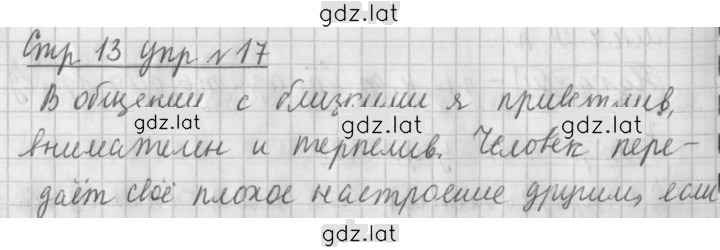 gdz.lat
Стр 13 упр №17
В общении с близкими я приветлив,
gdz.lat gdz.lat
внимателен и терпелив. Человек пере-
даёт своё плохое настроение другим, если
gdz.lat